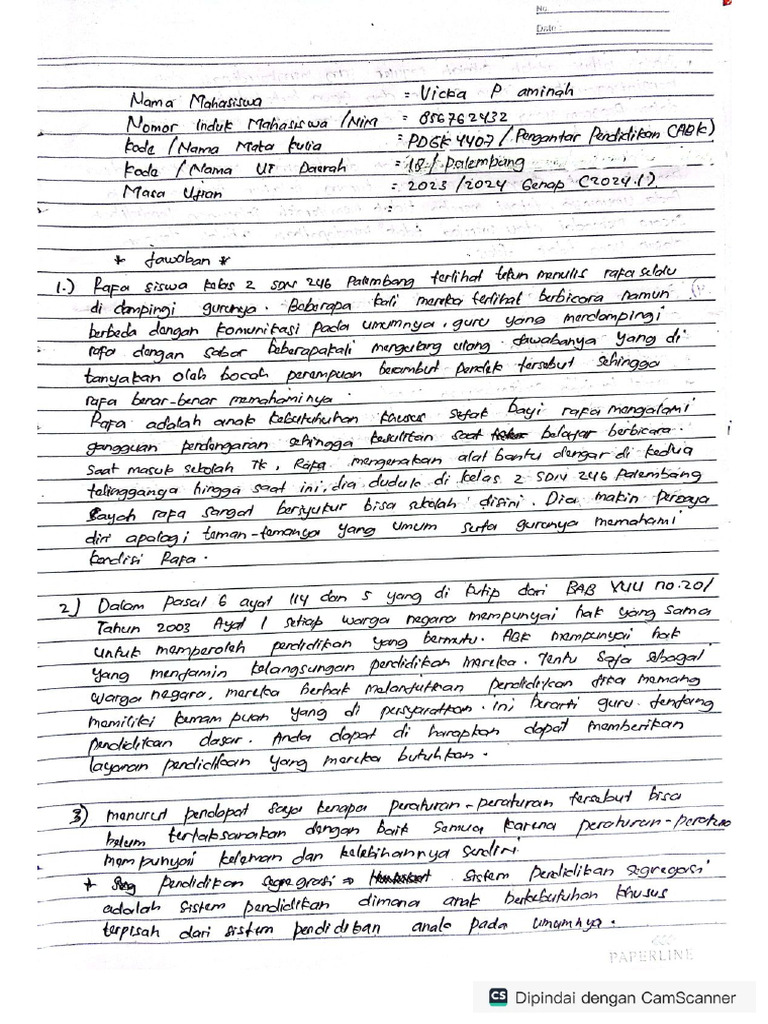 No.
Date :
Nama Mahasiswa : Vicka P aminah
Nomor Induk Mahasiswa /Nim = 856762432
Kode /Nama Mata Kulia = PDGK 4407 / Pengantar Pendidikan (ABK)
Kode / Nama UT Daerah : 18 / Palembang
Masa Ujian : 2023 /2024 Genap (2024.1)
:
* Jawaban *
1.) Rafa siswa kelas 2 SDN 246 Palembang terlihat tekun menulis rafa selalu
di dampingi gurunya. Beberapa kali mereka terlihat berbicara namun
berbeda dengan komunikasi pada umumnya, guru yang mendampingi
rafa dengan sabar beberapakali mengulang ulang Jawabanya yang di
tanyakan olah bocah perempuan berambut pendek tersebut sehingga
rafa benar-benar memahaminya.
Rafa adalah anak kebutuhuhan khusus sejak bayi rafa mengalami
gangguan perdengaran sehingga kesulitan saat belajar berbicara.
Saat masuk sekolah TK, Rafa mengenakan alat bantu dengar di kedua
telinggganya hingga saat ini, dia duduk di kelas 2 SDN 246 Palembang
Sayah rafa sangat bersyukur bisa sekolah disini. Dia makin percaya
diri apalagi teman-temanya yang umum serta gurunya memahami
kondisi Rafa.
2) Dalam pasal 6 ayat 1/4 dan 5 yang di kutip dari BAB no.20/
Tahun 2003 Ayat 1 setiap warga negara mempunyai hak yang sama
untuk memperoleh pendidikan yang bermutu. ABK mempunyai hak
yang menjamin kelangsungan pendidikan mereka. Tentu saja sebagai
warga negara, mereka berhak melanjutkan pendidikan jika memang
memiliki kemampuan yang di persyaratkan. ini berarti guru tentang
pendidikan dasar. Anda dapat di harapkan dapat memberikan
layanan pendidikan yang mereka butuhkan.
3) menurut pendapat saya kenapa peraturan-peraturan tersebut bisa
belum terlaksanakan dengan baik semua karena peraturan-peraturan
mempunyai keleman dan kelebihannya sendiri
* pendidikan segregrasi => sistem pendidikan segregasi
adalah sistem pendidikan dimana anak berkebutuhan khusus
terpisah dari sistem pendidikan anak pada umumnya.
PAPERLINE
CS Dipindai dengan CamScanner